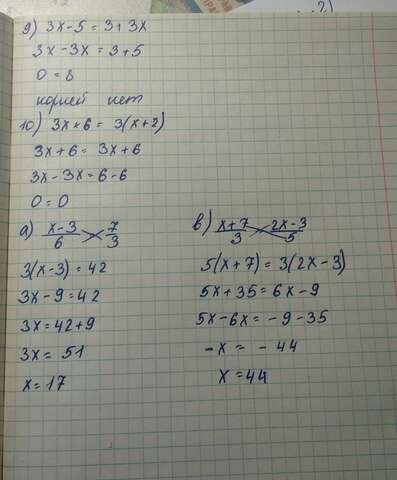 9) 3x-5 = 3+3x
3x-3x = 3+5
0 = 8
корней нет
10) 3x+6 = 3(x+2)
3x+6 = 3x+6
3x-3x = 6-6
0 = 0
а) x-3/6 = 7/3
3(x-3) = 42
3x-9 = 42
3x = 42+9
3x = 51
x = 17
в) x+7/3 = 2x-3/5
5(x+7) = 3(2x-3)
5x+35 = 6x-9
5x-6x = -9-35
-x = -44
x = 44